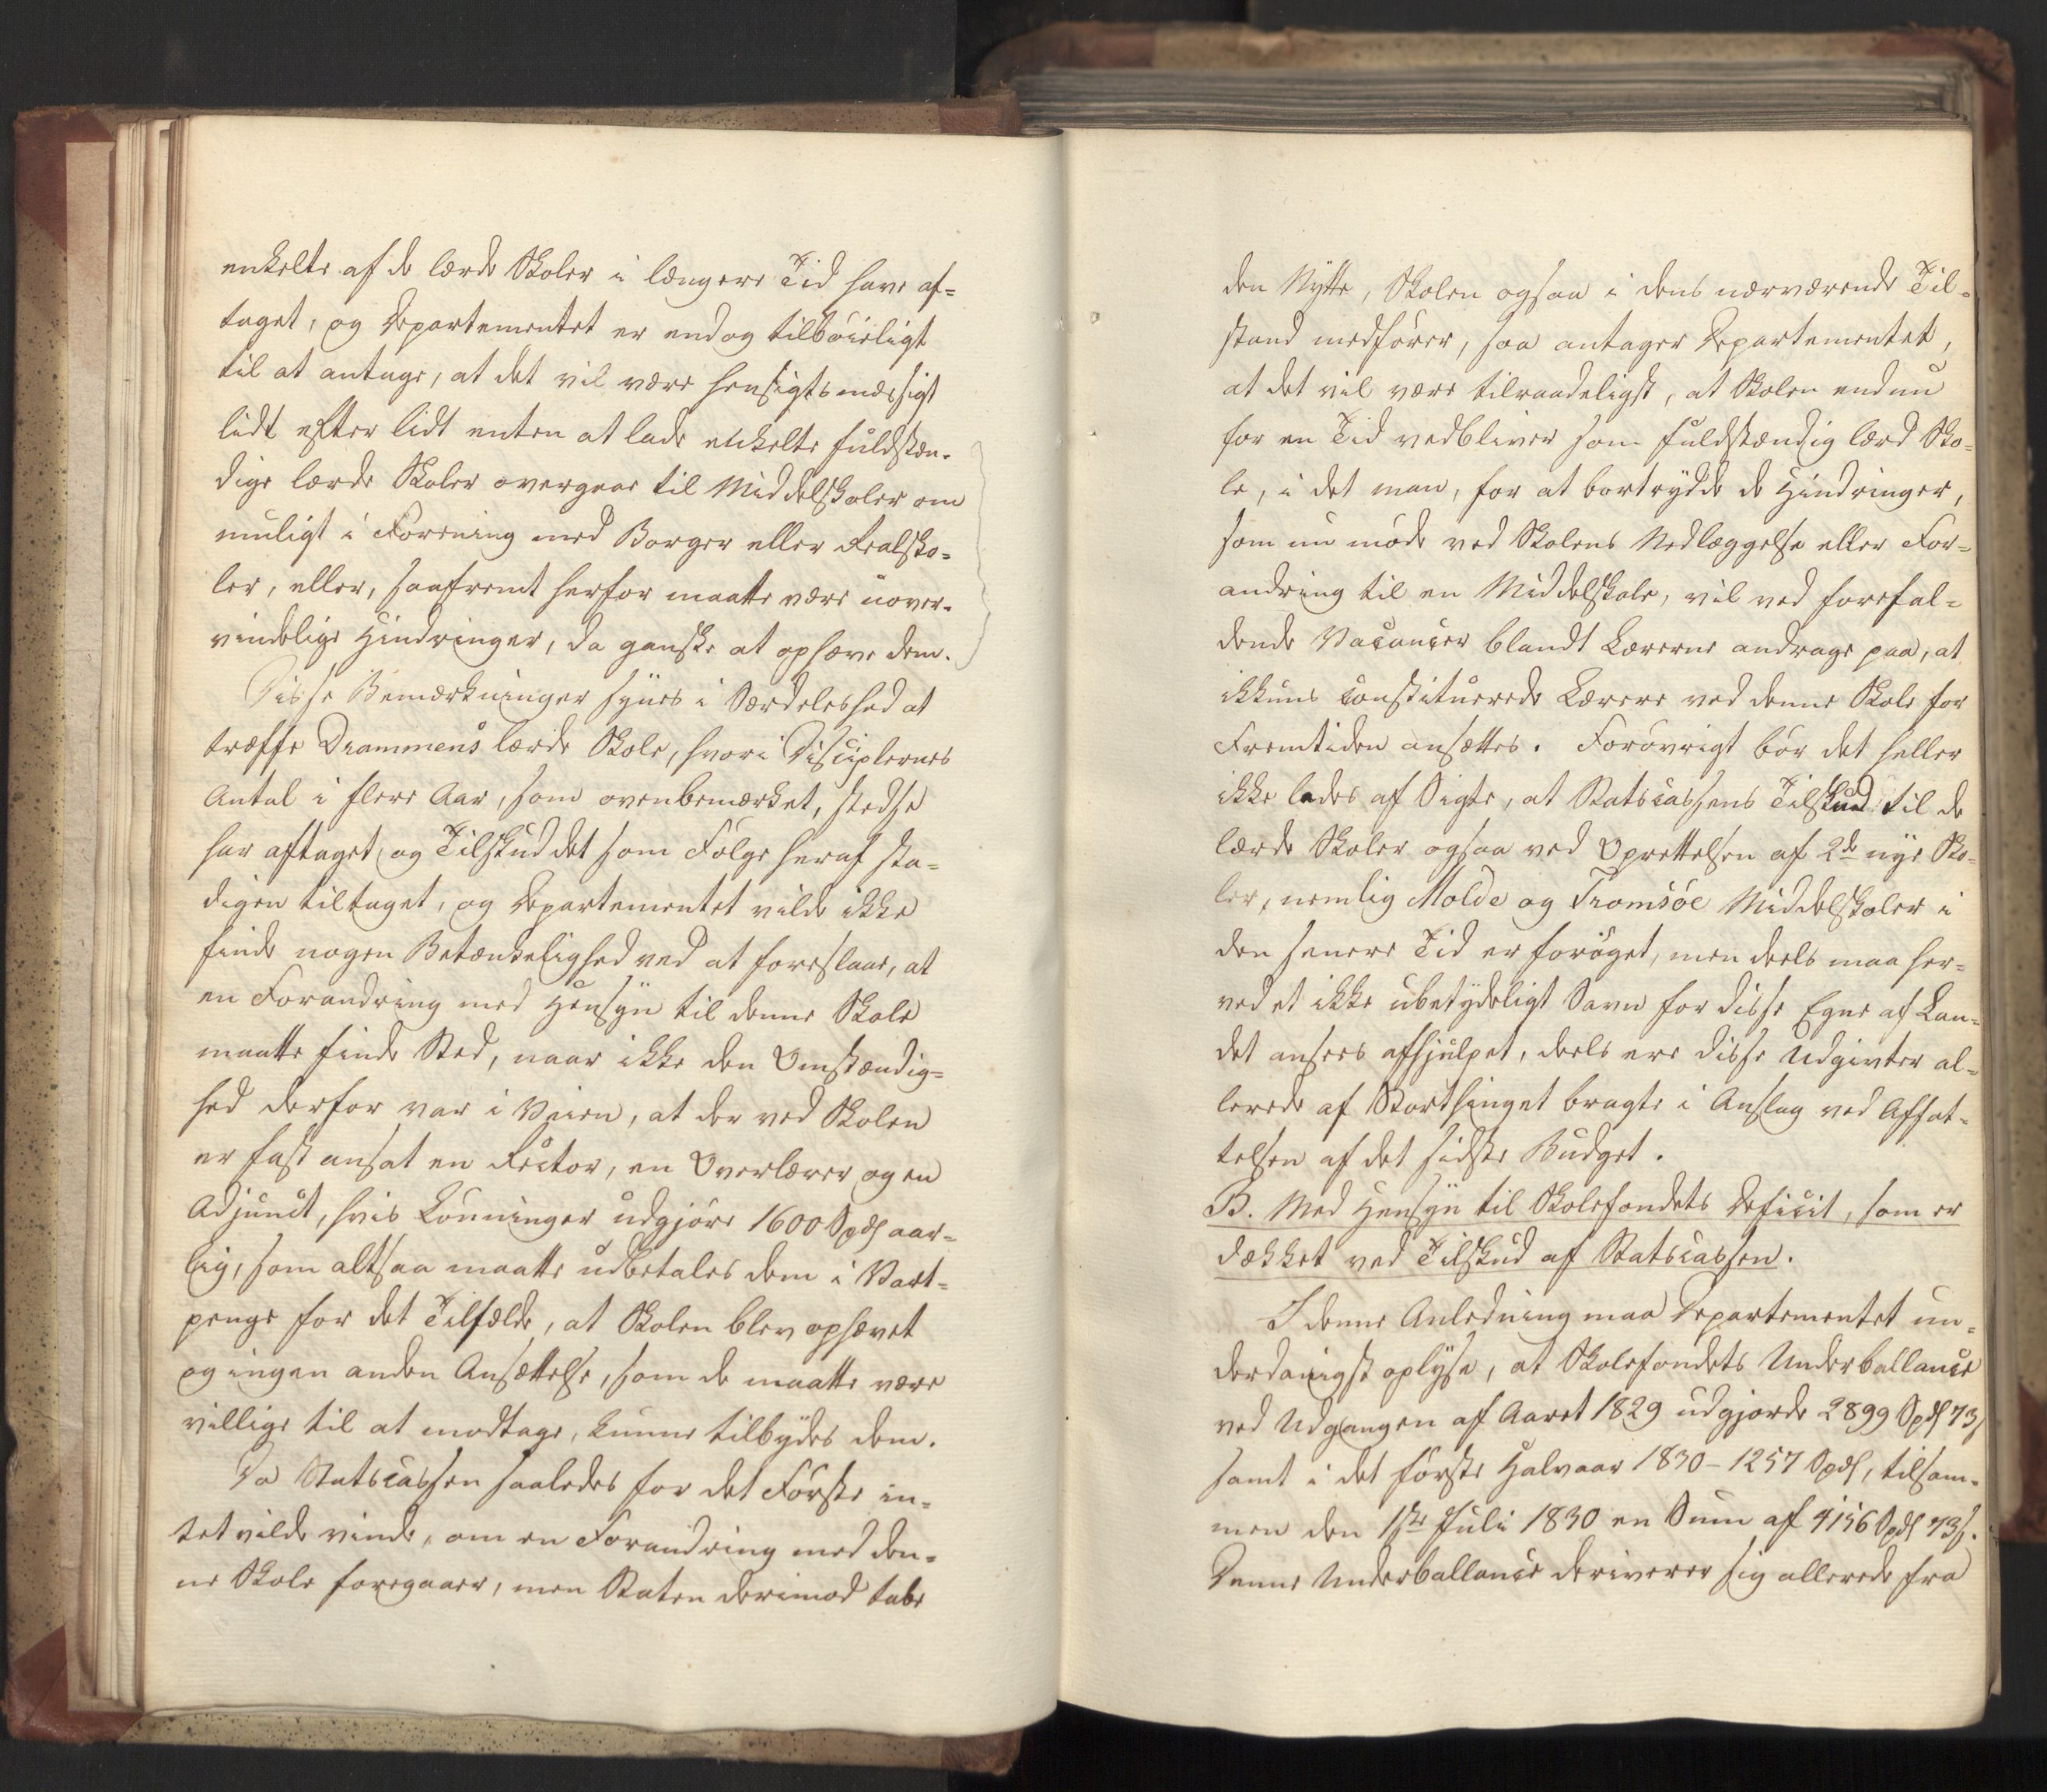 enkelte af de lærde Skoler i længere Tid have af-
taget, og Departementet er endog tilbøieligt
til at antage, at det vil være hensigtsmæssigt
lidt efter lidt enten at lade enkelte fuldstæn-
dige lærde Skoler overgaae til Middelskoler om
muligt i Forening med Borger eller Realsko-
ler, eller, saafremt herfor maatte være uover-
vindelige Hindringer, da ganske at ophæve dem.
Disse Bemærkninger synes i Særdeleshed at
træffe Drammens lærde Skole, hvori Disciplernes
Antal i flere Aar, som ovenbemærket, stedse
har aftaget og Tilskuddet som Følge heraf sta-
digen tiltaget, og Departementet vilde ikke
finde nogen Betænkelighed ved at foreslaae, at
en Forandring med Hensyn til denne Skole
maatte finde Sted, naar ikke den Omstændig-
hed derfor var i Veien, at der ved Skolen
er fast ansat en Rector, en Overlærer og en
Adjunct, hvis Lønninger udgjøre 1600 Spd aar-
lig, som altsaa maatte udbetales dem i Vart-
penge for det Tilfælde, at Skolen blev ophævet
og ingen anden Ansættelse, som de maatte være
villige til at modtage, kunne tilbydes dem.
Da Statscassen saaledes for det Første in-
tet vilde vinde, om en Forandring med den-
ne Skole foregaaer, men Staten derimod tabe
den Nytte, Skolen ogsaa i dens nærværende Til-
stand medfører, saa antager Departementet,
at det vil være tilraadeligst, at Skolen endnu
for en Tid vedbliver som fuldstændig lærd Sko-
le, i det man, for at bortrydde de Hindringer,
som nu møde ved Skolens Nedlæggelse eller For-
andring til en Middelskole, vil ved forefal-
dende Vacancer blandt Lærerne andrage paa, at
ikkuns constituerede Lærere ved denne Skole for
Fremtiden ansættes. Forøvrigt bør det heller
ikke lades af Sigte, at Statscassens Tilskud til de
lærde Skoler ogsaa ved Oprettelsen af 2de nye Sko-
ler, nemlig Molde og Tromsøe Middelskoler i
den senere Tid er forøget, men deels maa her-
ved et ikke ubetydeligt Savn for disse Egne af Lan-
det ansees afhjulpet, deels ere disse Udgivter al-
lerede af Storthinget bragte i Anslag ved Affat-
telsen af det sidste Budget.
B. Med Hensyn til Skolefondets Deficit, som er
dækket ved Tilskud af Statscassen.
I denne Anledning maa Departementet un-
derdanigst oplyse, at Skolefondets Underballance
ved Udgangen af Aaret 1829 udgjorde 2899 Spd 73 s
samt i det første Halvaar 1830 - 1257 Spd, tilsam-
men den 1ste Juli 1830 en Sum af 4156 Spd 73 s.
Denne Underballance deriverer sig allerede fra